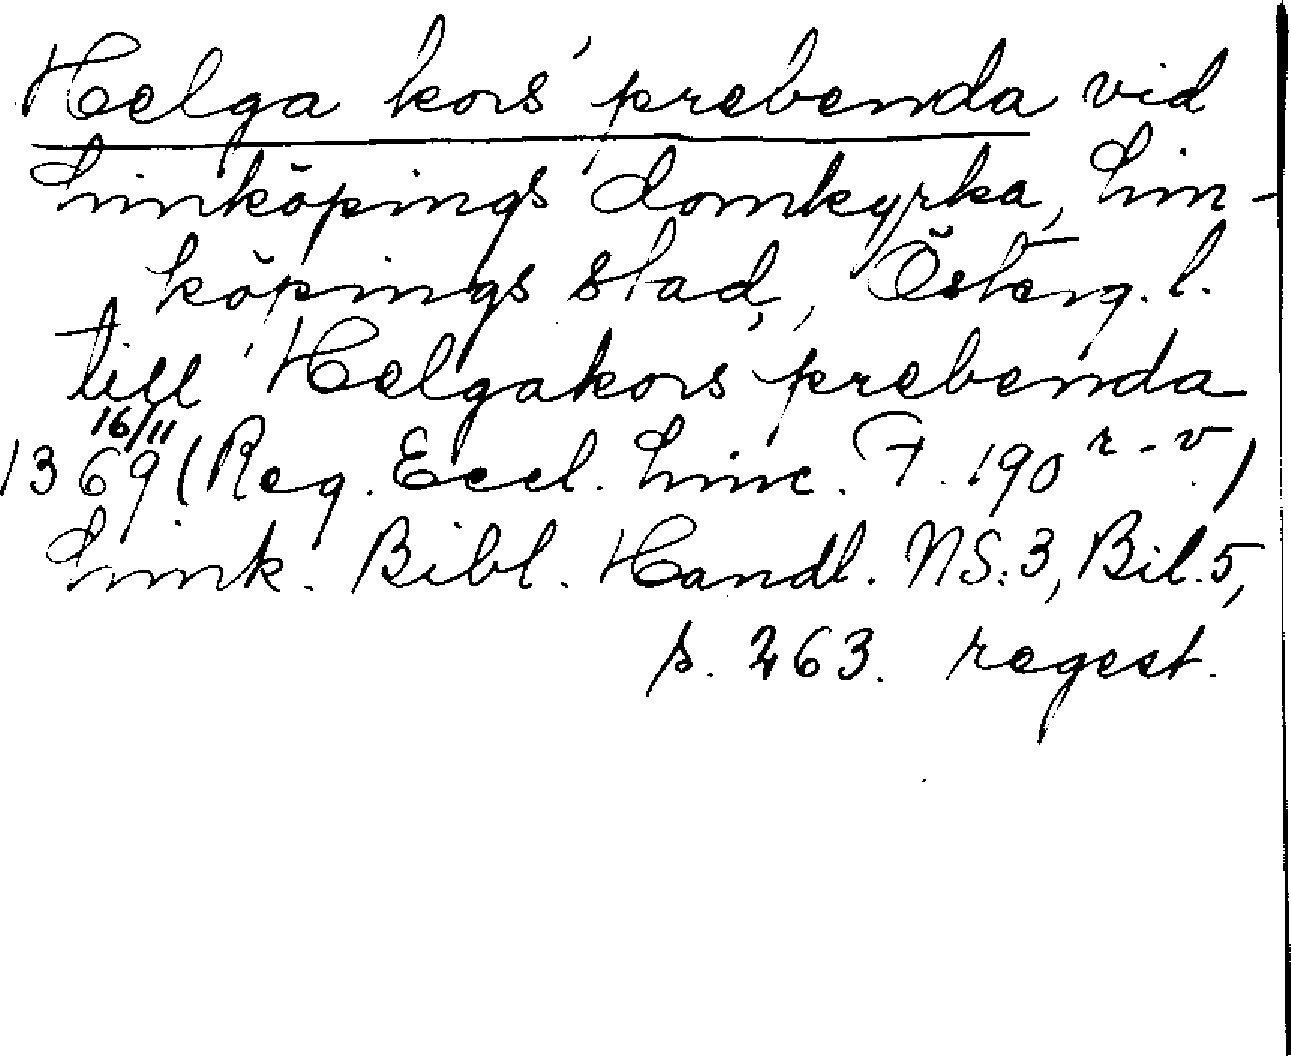 Helga kors' prebenda vid
Linköpings domkyrka, Lin-
köpings stad, Österg. l.
till Helgakors prebenda
16/11
1369 (Reg. Eccl. Linc. F. 190 r-v.)
Link. Bibl. Handl. NS:3, Bil. 5,
s. 263. regest.